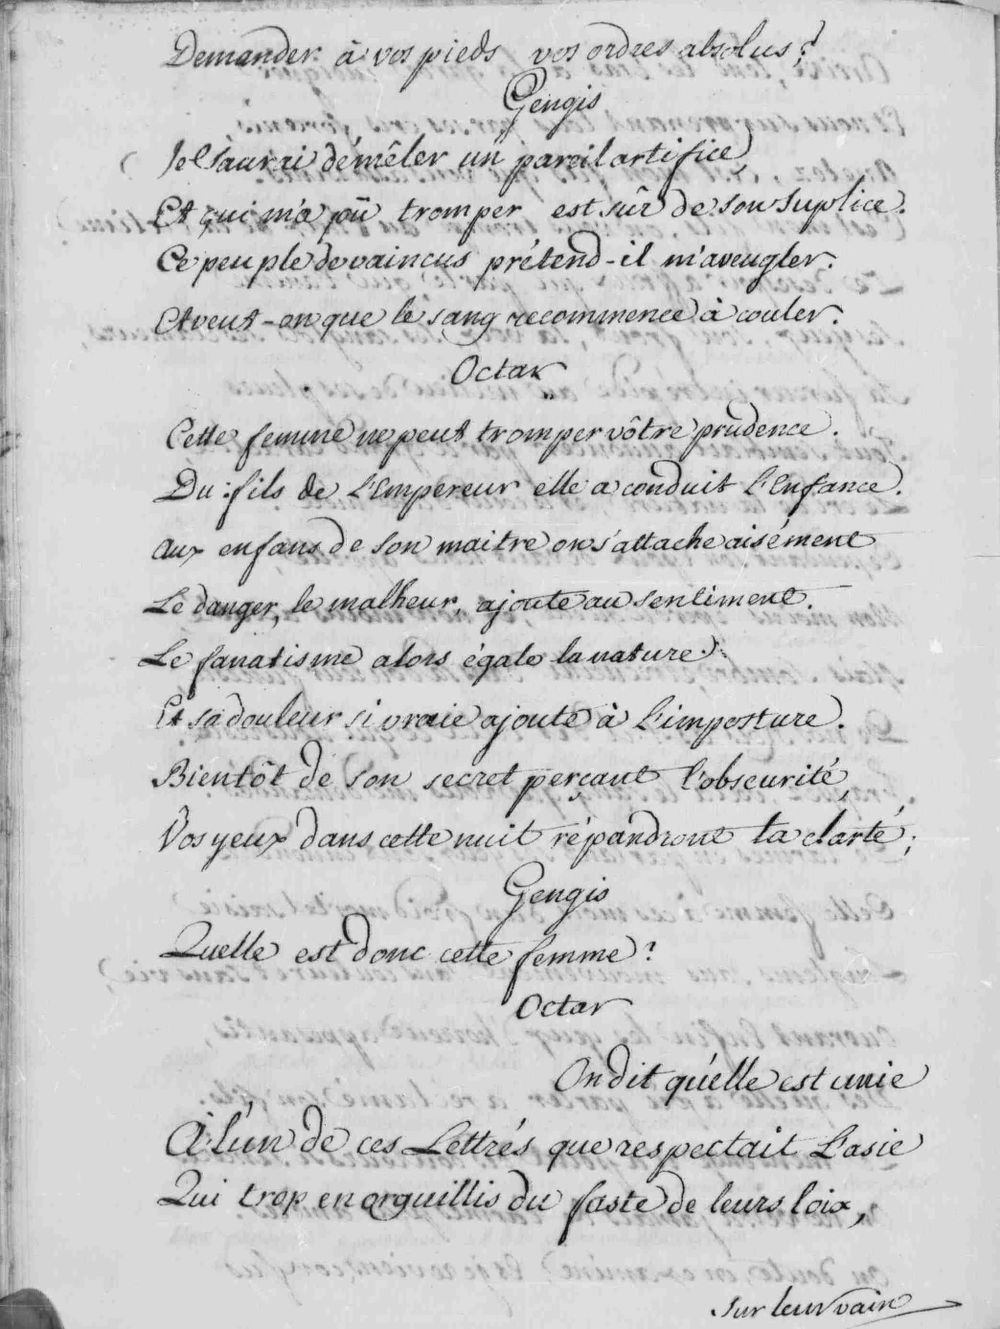 Demander à vos pieds vos ordres absolus?
Gengis
Je saurai démêler un pareil artifice,
Et qui m'a pû tromper est sûr de son suplice.
Ce peuple de vaincus prétend-il m'aveugler.
Et veut-on que le sang recommence à couler.
Octar
Cette femme ne peut tromper vôtre prudence.
Du fils de L'Empereur elle a conduit L'Enfance.
Aux enfans de son maitre on s'attache aisément
Le danger, le malheur, ajoute au sentiment.
Le fanatisme alors égale la nature.
Et sa douleur si vraie ajoute à L'imposture.
Bientôt de son secret perçant l'obscurité,
Vos yeux dans cette nuit répandront la clarté;
Gengis
Quelle est donc cette femme?
Octar
On dit qu'elle est unie
À l'un de ces Lettrés que respectait L'asie
Qui trop enorguillis du faste de leurs loix,
Sur leur vain